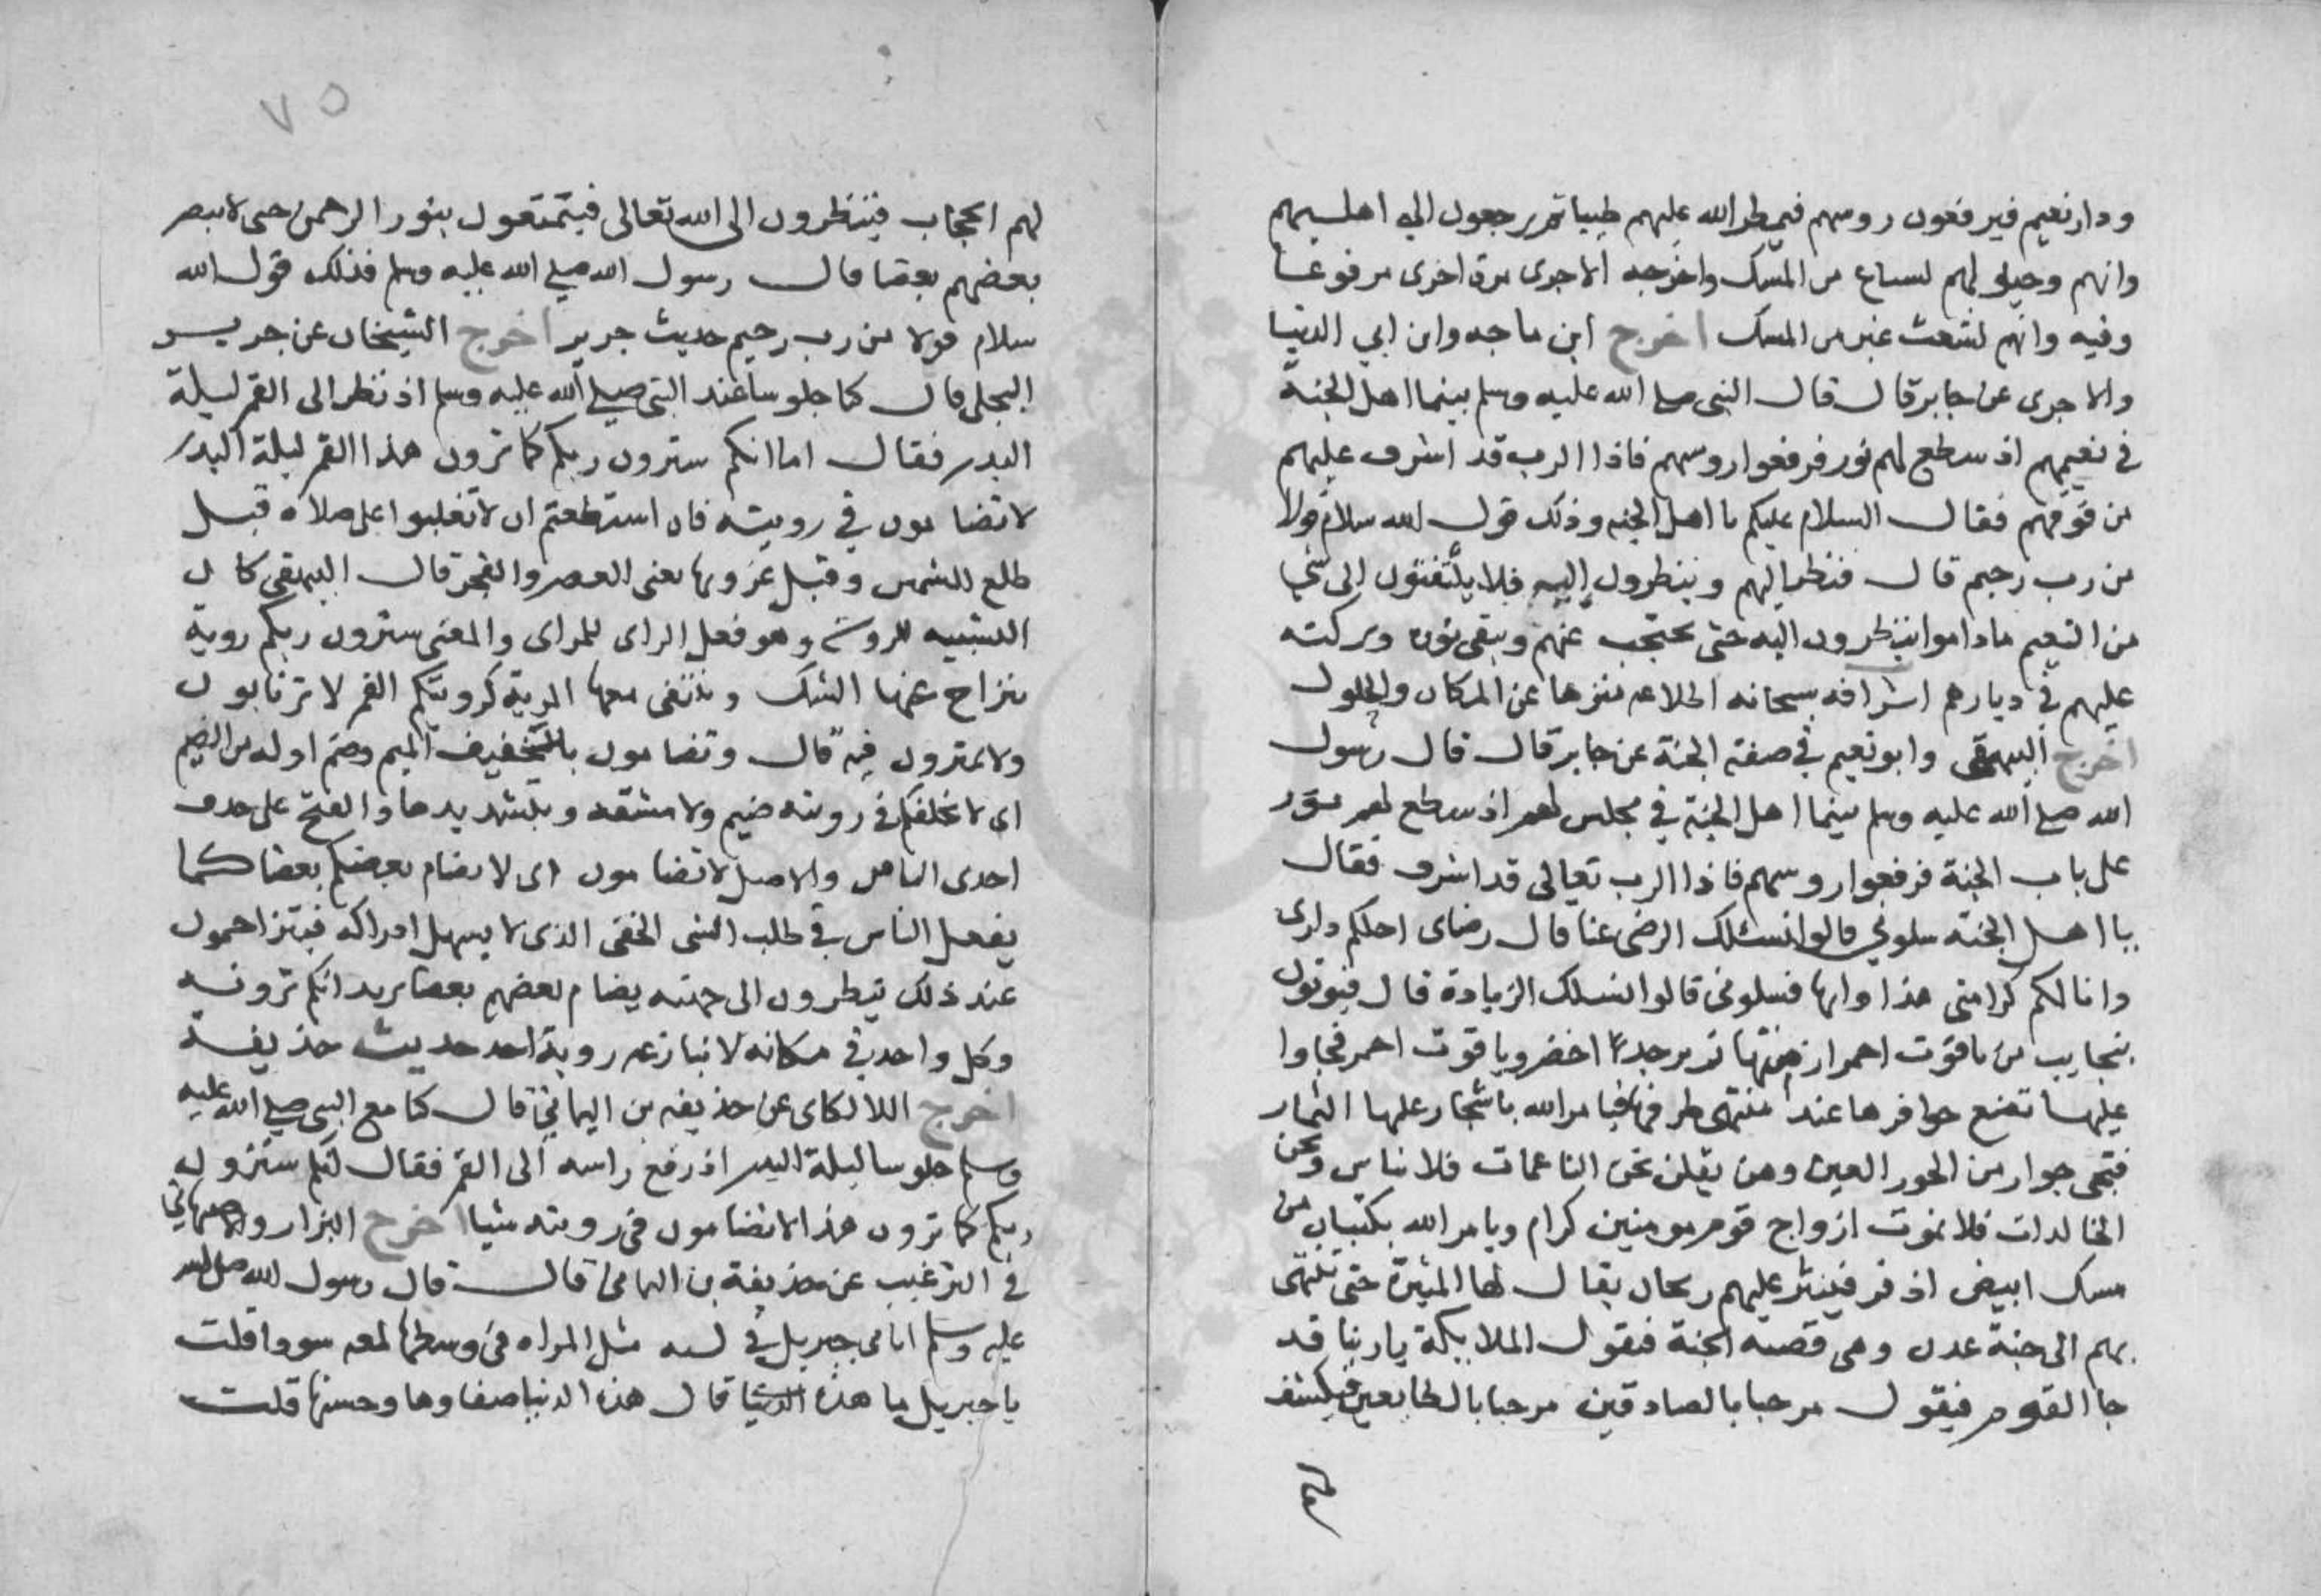 ودار نعيم فيرفعون روسهم فيمطر الله عليهم طيبا ثم يرجعون الي اهلسهم
وانهم وخيله لهم لسباع من المسك واخرجه الاجرى مرة اخرى مرفوعا
وفيه وانهم لشعث غبر من المسك اخرج ابن ماجه وابن ابي الدنيا
والاجرى عن جابر قال قال النبى صلى الله عليه وسلم بينما اهل الجنة
في نعيمهم اذ سطع لهم نور فرفعوا روسهم فاذا الرب قد اشرف عليهم
من فوقهم فقال السلام عليكم يا اهل الجنه وذلك قول الله سلام قولا
من رب رحيم قال فنظر اليهم وينظرون اليه فلا يلتفتون الى شي
من النعيم ماداموا ينظرون اليه حتى يحتجب عنهم ويبقى نوره وبركته
عليهم في ديارهم اشرافه سبحانه اطلاعه منزها عن المكان والحلول
اخرج البيهقى وابو نعيم في صفة الجنة عن جابر قال قال رسول
الله صلى الله عليه وسلم بينما اهل الجنة في مجلس لهم اذ سطع لهم نور
على باب الجنة فرفعوا روسهم فاذا الرب تعالى قد اشرف فقال
يا اهل الجنة سلوني قالوا نسئلك الرضى عنا قال رضاى احلكم دارى
وانالكم كرامتى هذا اوانها فسلونى قالوا نسلك الزيادة قال فيوتون
بنجايب من ياقوت احمر ازمتها زبرجد اخضر وياقوت احمر فجاوا
عليها تضع حوافرها عند منتهى طرفها فيامر الله باشجار عليها الثمار
فتجى جوار من الحور العين وهن يقلن نحن الناعمات فلا نباس ونحن
الخالدات فلا نموت ازواج قوم مومنين كرام ويامر الله بكثبان من
مسك ابيض اذفر فينثر عليهم ريحان يقال لها المثيرة حتى تنتهى
بهم الى جنة عدن وهى قصبه الجنة فتقول الملايكة يا ربنا قد
جا القوم فيقول مرحبا بالصادقين مرحبا بالطايعين فيكشف
لهم
٧٥
لهم الحجاب فينظرون الى الله تعالى فيتمتعون بنور الرحمن حتى لا يبصر
بعضهم بعضا قال رسول الله صلى الله عليه وسلم فذلك قول الله
سلام قولا من رب رحيم حديث جرير اخرج الشيخان عن جرير
البجلى قال كنا جلوسا عند النبى صلى الله عليه وسلم اذ نظر الى القمر ليلة
البدر فقال اما انكم سترون ربكم كما ترون هذا القمر ليلة البدر
لا تضامون في رويته فان استطعتم ان لا تغلبوا على صلاة قبل
طلع للشمس وقبل غروبها يعنى العصر والفجر قال البيهقى كان
التشبيه للروية وهو فعل الراى للمراى والمعنى سترون ربكم روية
ينزاح عنها الشك وتنتفى معها المرية كرويتكم القمر لا ترتابون
ولا تمترون فيه قال وتضامون بالتخفيف الميم وضم اوله من الضيم
اى لا يلحقكم في رويته ضيم ولا مشقه وبتشديدها والفتح على حذف
احدى التاين والاصل لا تتضامون اى لا يضام بعضكم بعضا كما
يفعل الناس في طلب الشى الخفى الذى لا يسهل ادراكه فيتزاحمون
عند ذلك ينظرون الى جهته يضام بعضهم بعضا يريد انكم ترونه
وكل واحد في مكانه لا ينازعه روية احد حديث حذيفة
اخرج اللالكاى عن حذيفه بن اليمانى قال كنا مع النبى صلى الله عليه
وسلم جلوسا ليلة البدر اذ رفع راسه الى القمر فقال لكم سترون
ربكم كما ترون هذا لا تضامون فى رويته شيا اخرج البزار والاصبهانى
في الترغيب عن حذيفة بن اليمانى قال قال رسول الله صلى الله
عليه وسلم اتانى جبريل في مثل المراه فى وسطها لمعه سودا قلت
يا جبريل ما هذه قال هذه الدنيا صفاوها وحسنها قلت